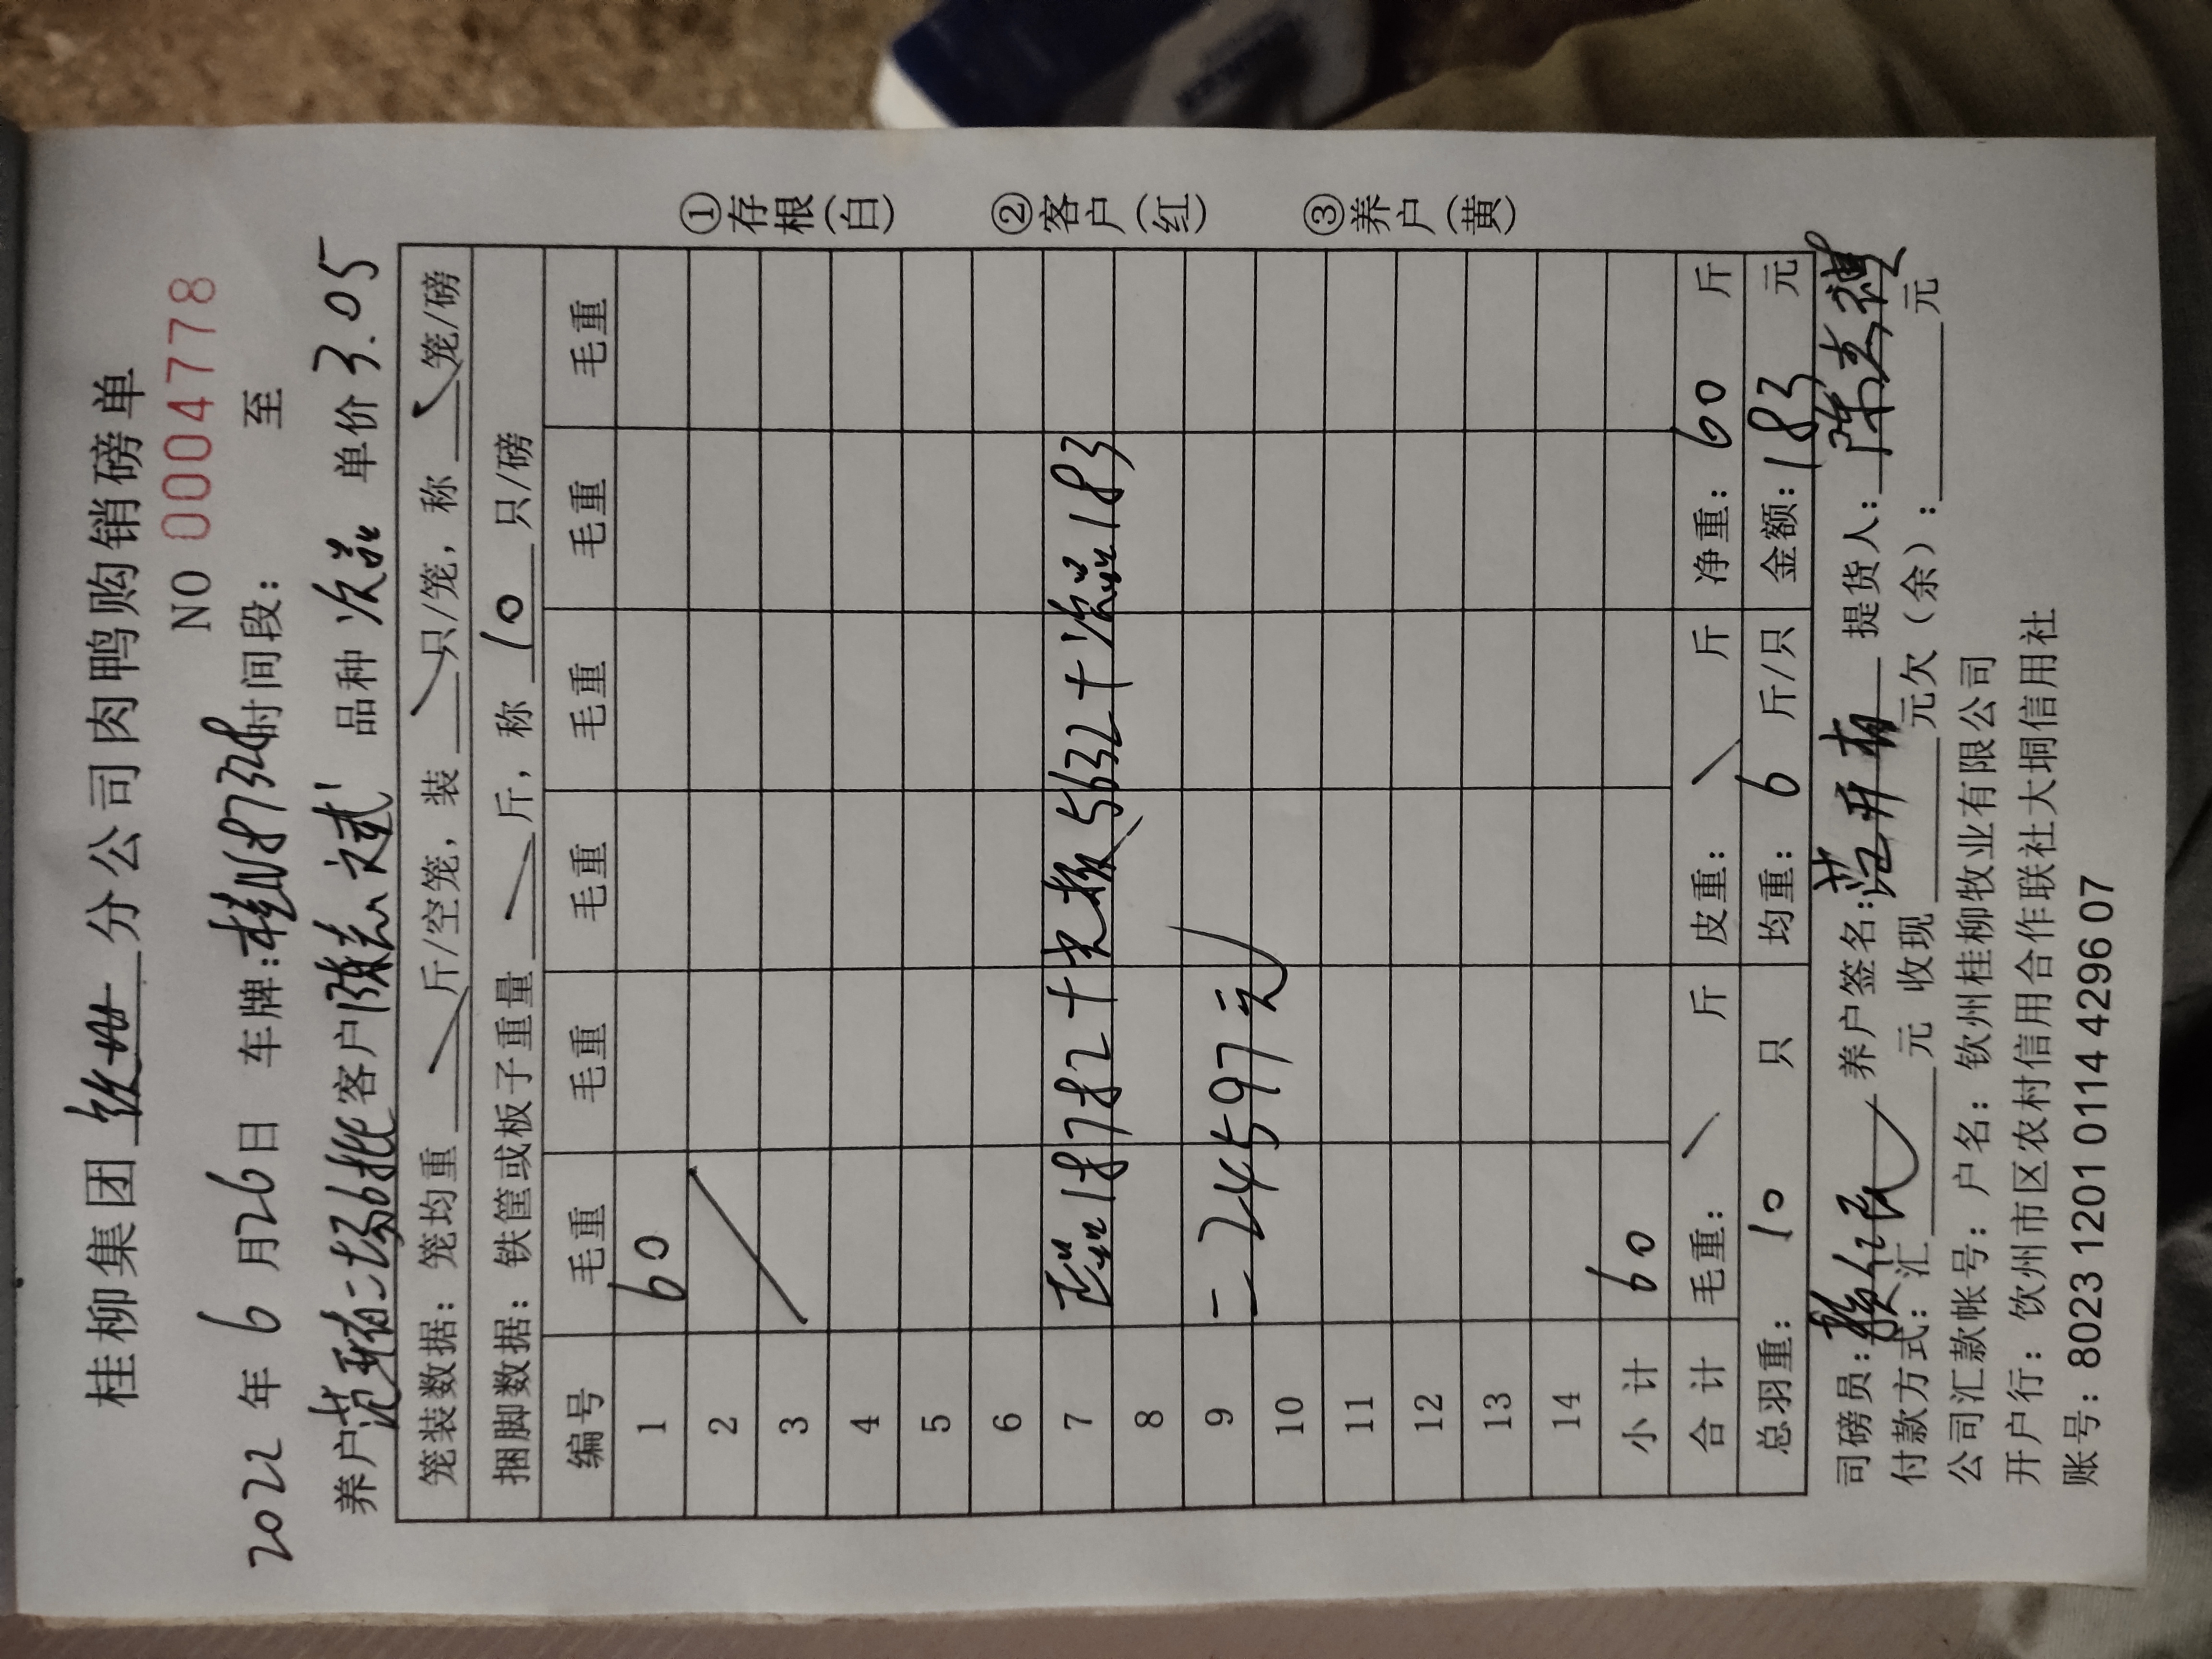 桂柳集团 钦州 分公司肉鸭购销磅单
NO 0004778
2022 年 6 月 26 日 车牌：桂N87328 时间段： 至
养户 范开有二场6批 客户 陈志斌 品种 次品 单价 3.05
笼装数据：笼均重 斤/空笼，装 只/笼，称 笼/磅
捆脚数据：铁筐或板子重量 斤，称 10 只/磅
编号 毛重 毛重 毛重 毛重 毛重 毛重
1 60
2
3
4
5
6
7 正品18782+ 板5632+次品183
8
9 =24597元
10
11
12
13
14
小计 60
合计 毛重： 斤 皮重： 斤 净重：60 斤
总羽重： 10 只 均重：6 斤/只 金额：183 元
司磅员： 养户签名：范开有 提货人：陈志
付款方式：汇 元 收现 元欠（余）： 元
公司汇款帐号：户名：钦州桂柳牧业有限公司
开户行：饮州市区农村信用合作联社大垌信用社
账号：8023 1201 0114 4296 07
①存根（白） ②客户（红） ③养户（黄）